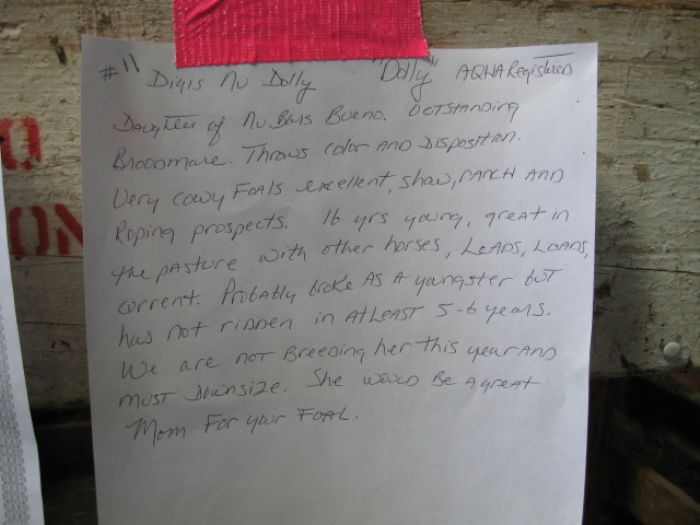 #11 Digis Nu Dolly "Dolly" AQHA Registered
Daughter of Nu Bars Bueno. Outstanding
Broodmare. Throws color and disposition.
Very cowy foals excellent, show, ranch and
Roping prospects. 16 yrs young, great in
the pasture with other horses, Leads, Loads,
current. Probably broke as a youngster but
has not ridden in at least 5-6 years.
We are not breeding her this year and
must downsize. She would be a great
Mom for your foal.
ON